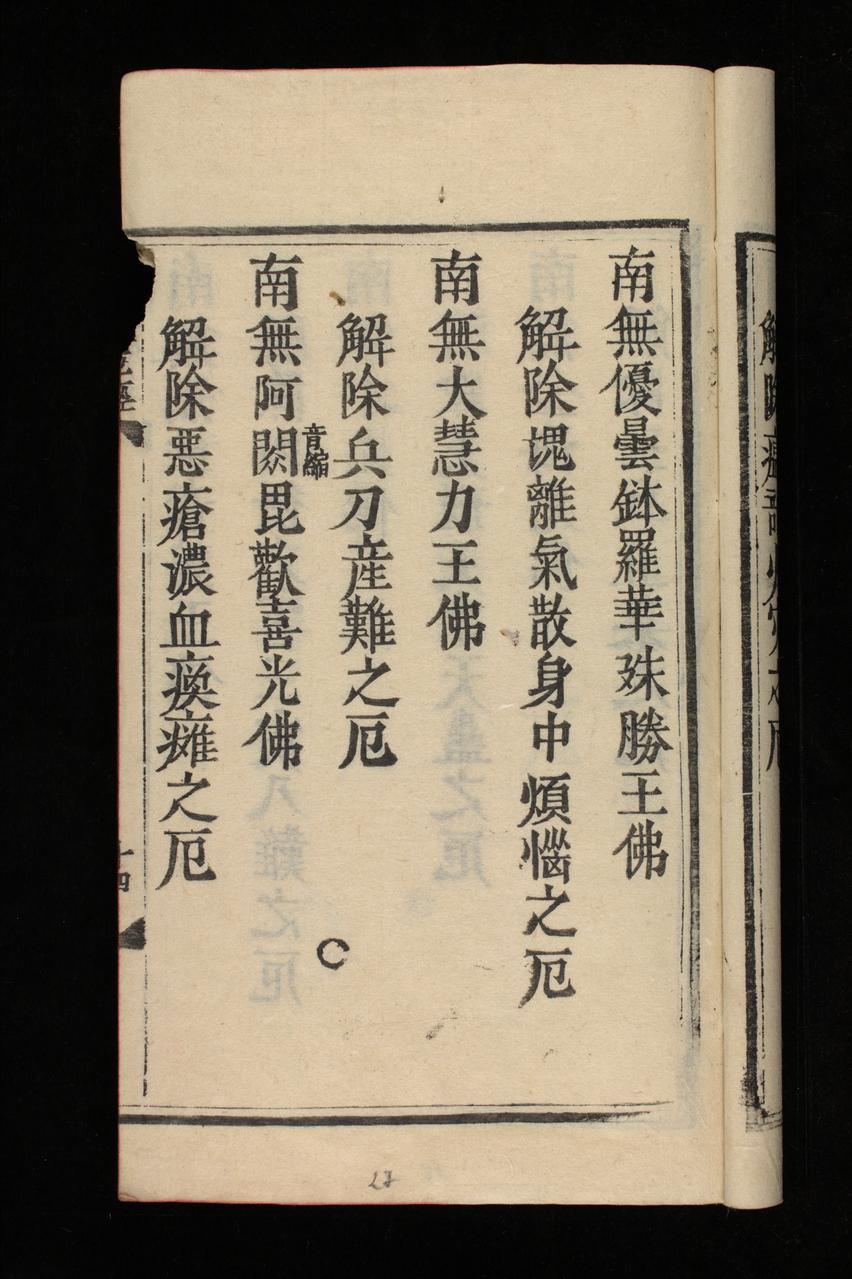 解除
之厄
南無優曇鉢羅華姝勝王佛
解除塊離氣散身中煩惱之厄
南無大慧力王佛
解除兵刀産難之厄
南無阿閦音縮毘歡喜光佛
解除惡瘡濃血瘓癱之厄
十四
27